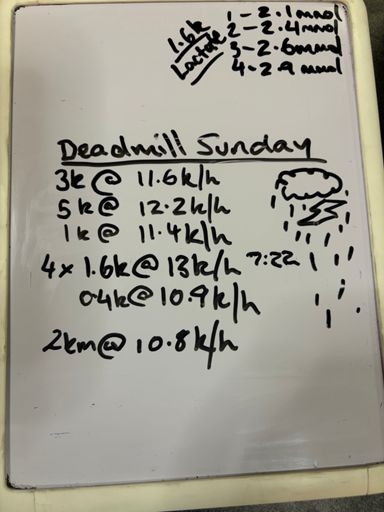 1.6k
Lactate
1 - 2.1mmol
2 - 2.4mmol
3 - 2.6mmol
4 - 2.9 mmol
Deadmill Sunday
3k @ 11.6k/h
5k@ 12.2k/h
1k@ 11.4k/h
4x 1.6k@ 13k/h 7:22
0.4k@ 10.9k/h
2km@ 10.8k/h